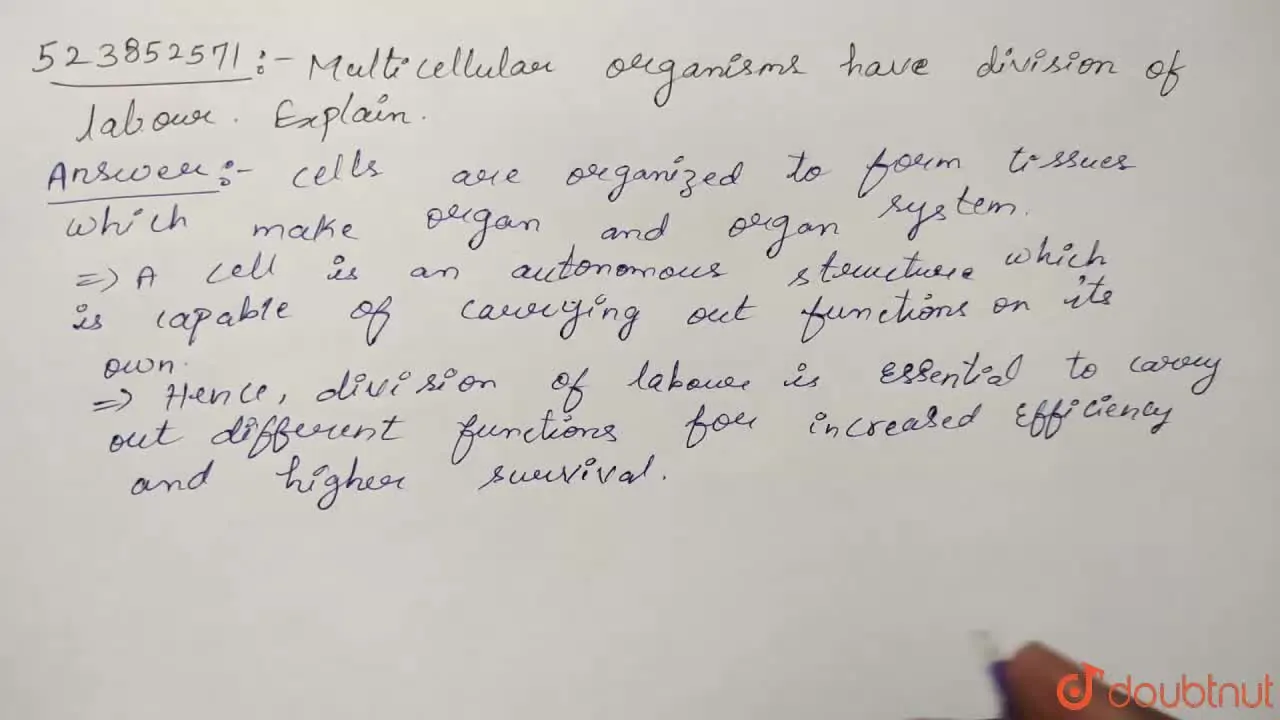 523852571:- Multicellular organisms have division of
labour. Explain.
Answer:- cells are organized to form tissues
which make organ and organ system.
=> A cell is an autonomous structure which
is capable of carrying out functions on its
own.
=> Hence, division of labour is essential to carry
out different functions for increased efficiency
and higher survival.
doubtnut